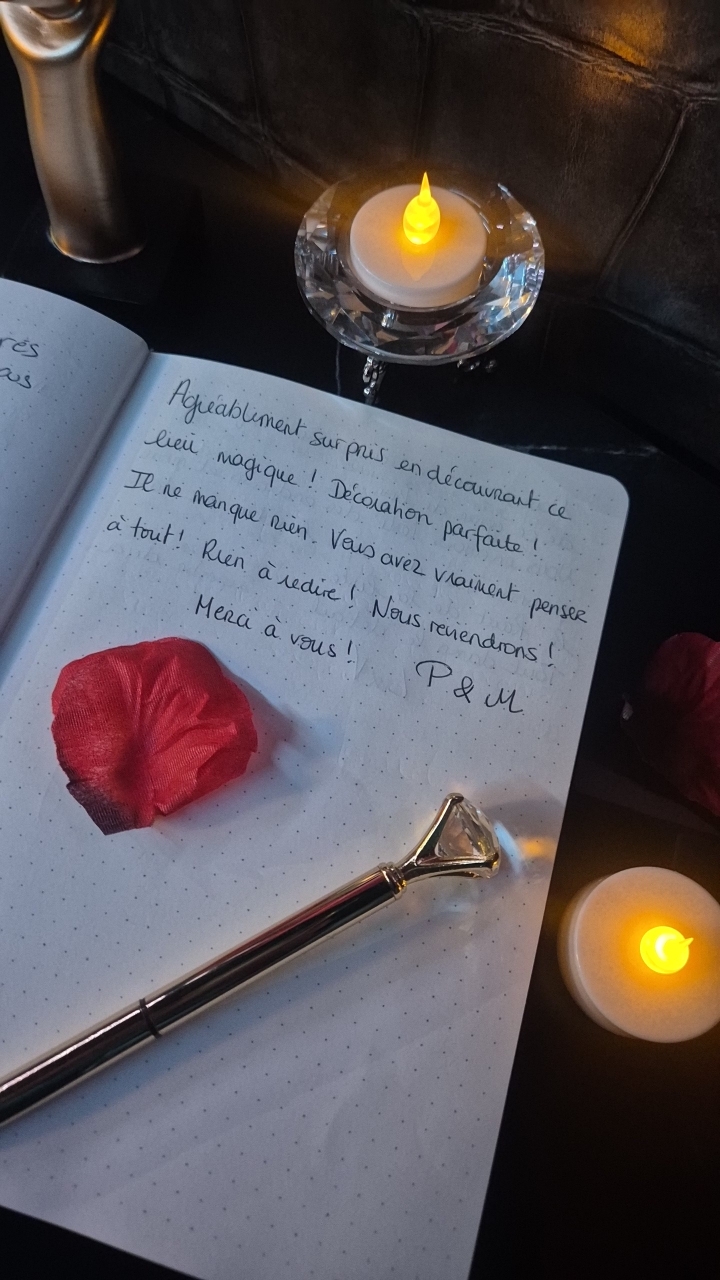 rés
Agréablement surpris en découvrant ce
lieu magique ! Décoration parfaite !
Il ne manque rien. Vous avez vraiment penser
à tout ! Rien à redire ! Nous reviendrons !
Merci à vous !
P & M